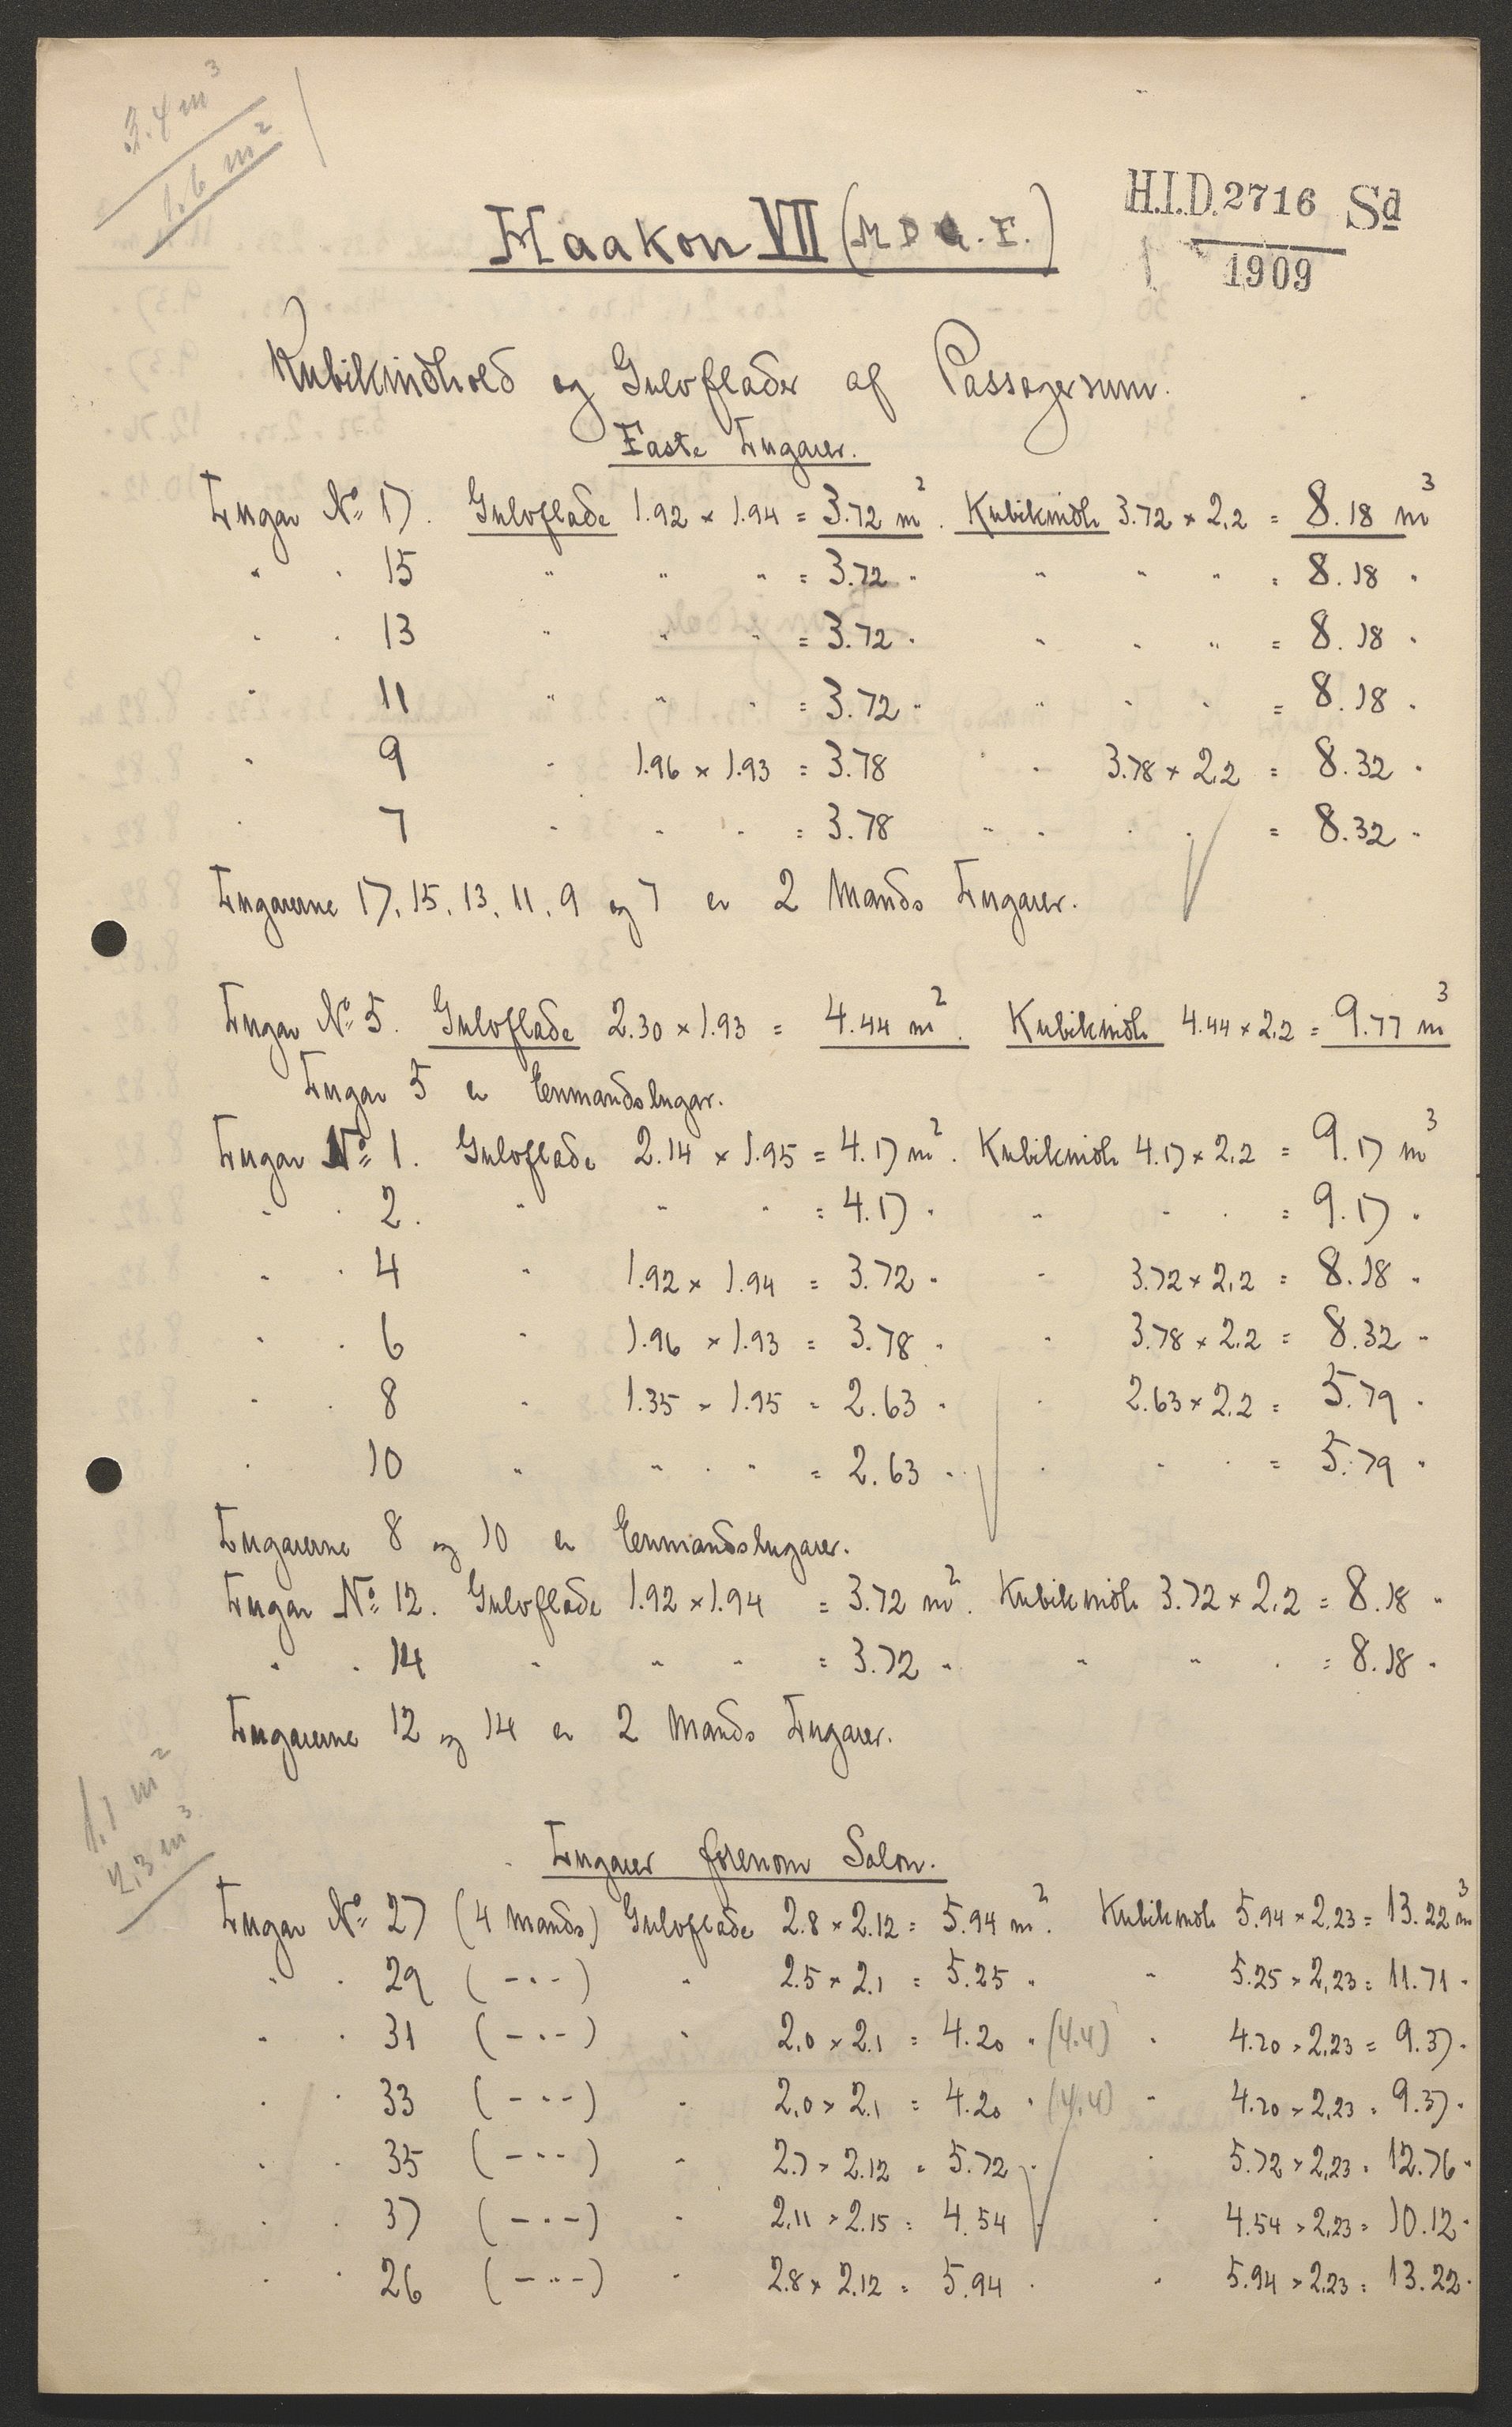 3.4 m³
1.6 m²
H.I.D. 2716 Sd
1909
Haakon VII (M D G. F.)
Kubikindhold og Gulvflader af Passagerrum.
Faste Lugarer.
Lugar No 17. Gulvflade 1.92 × 1.94 = 3.72 m². Kubikindh. 3.72 × 2.2 = 8.18 m³
" " 15 " " " = 3.72 " " " " = 8.18 "
" " 13 " " " = 3.72 " " " " = 8.18 "
" 11 " " " = 3.72 " " " " = 8.18 "
" 9 " 1.96 × 1.93 = 3.78 " " 3.78 × 2.2 = 8.32 "
" 7 " " " = 3.78 " " " " = 8.32 "
Lugarerne 17, 15, 13, 11, 9 og 7 er 2 Mands Lugarer.
Lugar No 5. Gulvflade 2.30 × 1.93 = 4.44 m². Kubikindh. 4.44 × 2.2 = 9.77 m³
Lugar 5 er Eenmandslugar.
Lugar No 1. Gulvflade 2.14 × 1.95 = 4.17 m². Kubikindh. 4.17 × 2.2 = 9.17 m³
" " 2. " " " = 4.17 " " " " = 9.17 "
" " 4 " 1.92 × 1.94 = 3.72 " " 3.72 × 2.2 = 8.18 "
" " 6 " 1.96 × 1.93 = 3.78 " " 3.78 × 2.2 = 8.32 "
" " 8 " 1.35 × 1.95 = 2.63 " " 2.63 × 2.2 = 5.79 "
" 10 " " " " = 2.63 " " " " = 5.79 "
Lugarerne 8 og 10 er Eenmandslugarer.
Lugar No 12. Gulvflade 1.92 × 1.94 = 3.72 m². Kubikindh. 3.72 × 2.2 = 8.18 "
" " 14 " " " = 3.72 " " " " = 8.18 "
Lugarerne 12 og 14 er 2 Mands Lugarer.
1.1 m²
2.3 m³
Lugarer forenom Salon.
Lugar No 27 (4 Mands) Gulvflade 2.8 × 2.12 = 5.94 m². Kubikindh. 5.94 × 2.23 = 13.22 m³
" " 29 (- " -) " 2.5 × 2.1 = 5.25 " " 5.25 × 2.23 = 11.71 "
" " 31 (- " -) " 2.0 × 2.1 = 4.20 " (4.4) " 4.20 × 2.23 = 9.37 "
" " 33 (- " -) " 2.0 × 2.1 = 4.20 " (4.4) " 4.20 × 2.23 = 9.37 "
" " 35 (- " -) " 2.7 × 2.12 = 5.72 " " 5.72 × 2.23 = 12.76 "
" " 37 (- " -) " 2.11 × 2.15 = 4.54 " " 4.54 × 2.23 = 10.12 "
" " 26 (- " -) " 2.8 × 2.12 = 5.94 " " 5.94 × 2.23 = 13.22 "